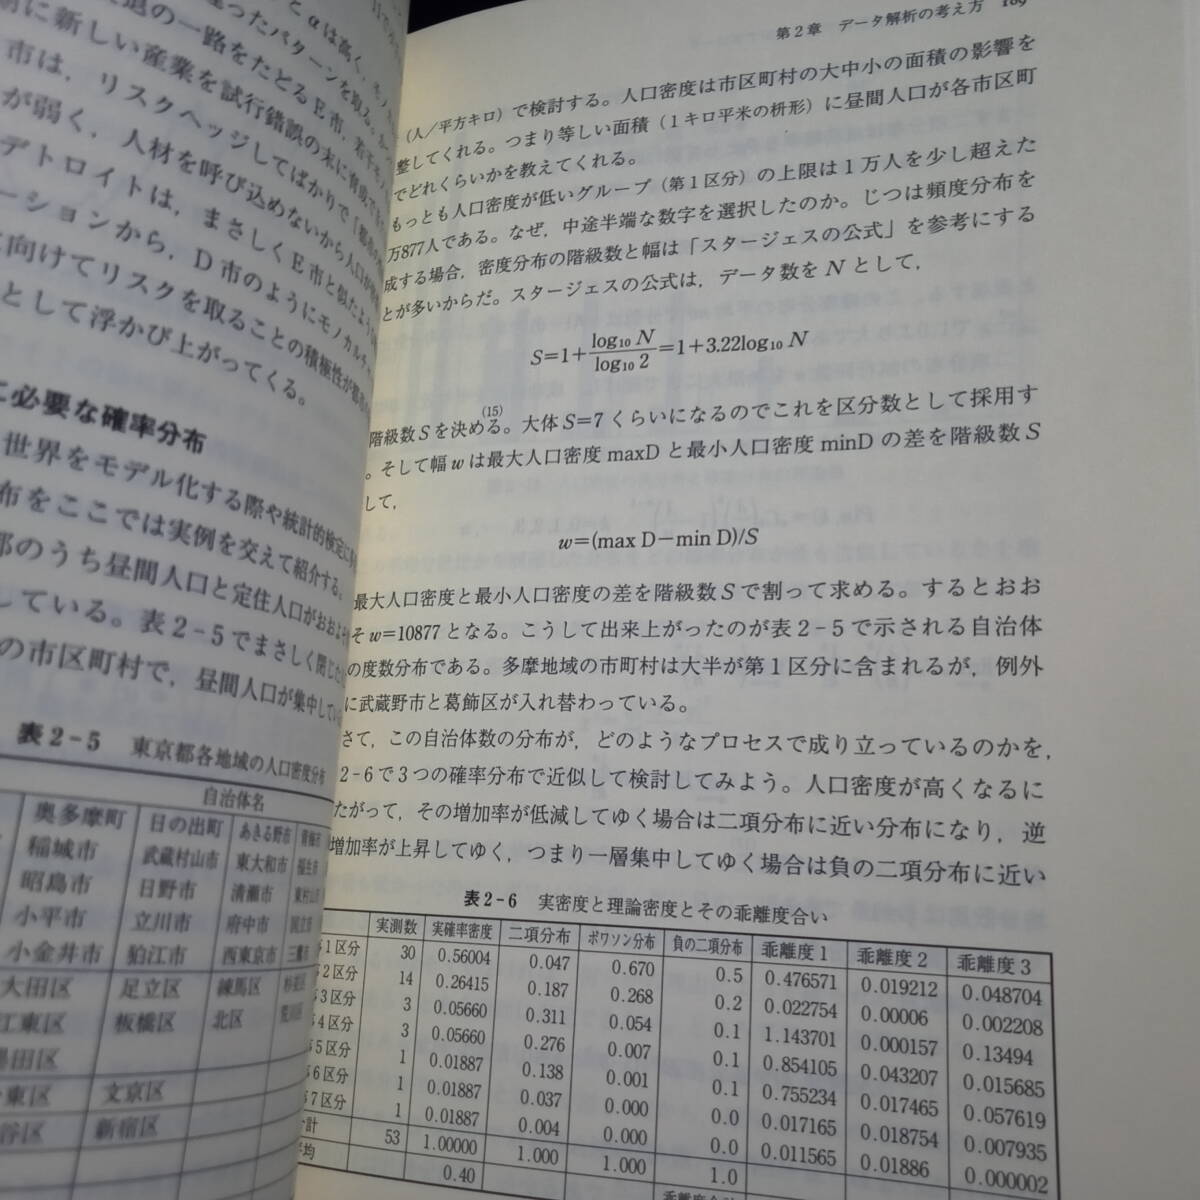 とαは高く,モノカ
違ったパターンを取る。かつ
退の一路をたどるE市,若干モノ
期に新しい産業を試行錯誤の末に育成でき
市は,リスクヘッジしてばかりで「都市の
が弱く,人材を呼び込めないから人口が
デトロイトは,まさしくE市と似たような
ーションから,D市のようにモノカルチャ
に向けてリスクを取ることの積極性が都市の
として浮かび上がってくる。
に必要な確率分布
世界をモデル化する際や統計的検定に
布をここでは実例を交えて紹介する。
都のうち昼間人口と定住人口がおおよそ
している。表2-5でまさしく閉じた
の市区町村で,昼間人口が集中してい
表2-5 東京都各地域の人口密度分布
自治体名
奥多摩町 日の出町 あきる野市 青梅市
稲城市 武蔵村山市 東大和市 福生市
昭島市 日野市 清瀬市 東村山市
小平市 立川市 府中市 国立市
小金井市 狛江市 西東京市 三鷹市
大田区 足立区 練馬区 杉並区
江東区 板橋区 北区 荒川区
墨田区
台東区 文京区
渋谷区 新宿区
第2章 データ解析の考え方 189
(人/平方キロ)で検討する。人口密度は市区町村の大中小の面積の影響を
整してくれる。つまり等しい面積(1キロ平米の枡形)に昼間人口が各市区町
でどれくらいかを教えてくれる。
もっとも人口密度が低いグループ(第1区分)の上限は1万人を少し超えた
万877人である。なぜ,中途半端な数字を選択したのか。じつは頻度分布を
成する場合,密度分布の階級数と幅は「スタージェスの公式」を参考にする
とが多いからだ。スタージェスの公式は,データ数をNとして,
S=1+log₁₀ N/log₁₀ 2=1+3.22log₁₀ N
階級数Sを決める。(15)大体S=7くらいになるのでこれを区分数として採用す
。そして幅wは最大人口密度maxDと最小人口密度minDの差を階級数S
して,
w=(max D−min D)/S
最大人口密度と最小人口密度の差を階級数Sで割って求める。するとおお
そw=10877となる。こうして出来上がったのが表2-5で示される自治体
の度数分布である。多摩地域の市町村は大半が第1区分に含まれるが,例外
に武蔵野市と葛飾区が入れ替わっている。
さて,この自治体数の分布が,どのようなプロセスで成り立っているのかを,
2-6で3つの確率分布で近似して検討してみよう。人口密度が高くなるに
たがって,その増加率が低減してゆく場合は二項分布に近い分布になり,逆
増加率が上昇してゆく,つまり一層集中してゆく場合は負の二項分布に近い
表2-6 実密度と理論密度とその乖離度合い
実測数 実確率密度 二項分布 ポワソン分布 負の二項分布 乖離度1 乖離度2 乖離度3
第1区分 30 0.56004 0.047 0.670 0.5 0.476571 0.019212 0.048704
第2区分 14 0.26415 0.187 0.268 0.2 0.022754 0.00006 0.002208
第3区分 3 0.05660 0.311 0.054 0.1 1.143701 0.000157 0.13494
第4区分 3 0.05660 0.276 0.007 0.1 0.854105 0.043207 0.015685
第5区分 1 0.01887 0.138 0.001 0.1 0.755234 0.017465 0.057619
第6区分 1 0.01887 0.037 0.000 0.0 0.017165 0.018754 0.007935
第7区分 1 0.01887 0.004 0.000 0.0 0.011565 0.01886 0.000002
合計 53 1.00000 1.000 1.000 1.0
平均 0.40